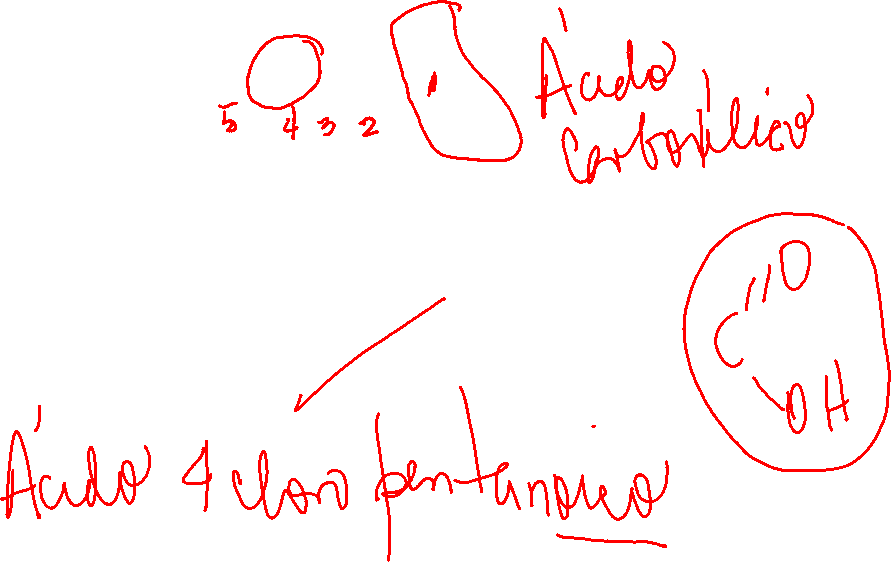 5 4 3 2 1
Ácido
Carboxílico
O
C
OH
Ácido 4 cloro pentanoico